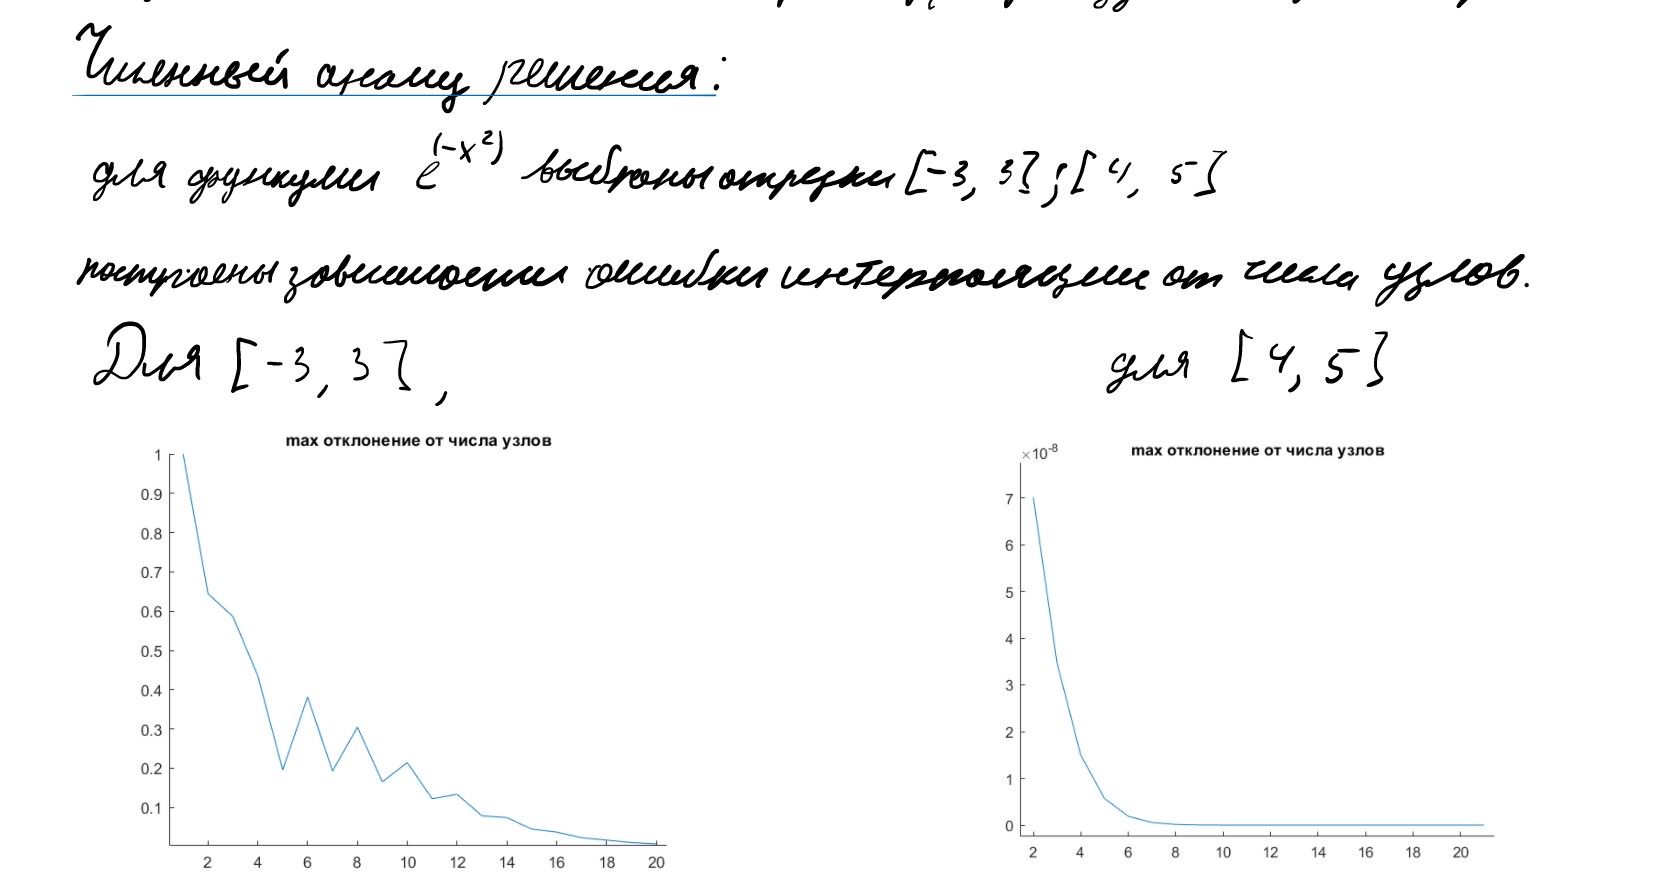 Численный анализ решения:
для функции e^(-x^2) выбраны отрезки [-3, 3]; [4, 5]
построены зависимости ошибки интерполяции от числа узлов.
Для [-3, 3], для [4, 5]
max отклонение от числа узлов
1
0.9
0.8
0.7
0.6
0.5
0.4
0.3
0.2
0.1
2 4 6 8 10 12 14 16 18 20
×10^-8 max отклонение от числа узлов
7
6
5
4
3
2
1
0
2 4 6 8 10 12 14 16 18 20